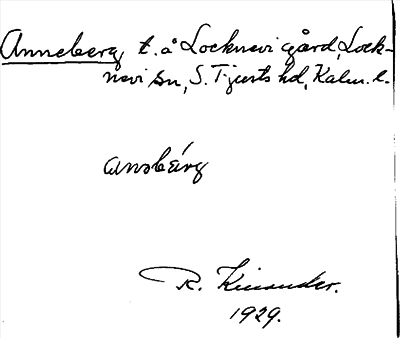 Anneberg t. å Locknevi gård, Lock-
nevi sn, S. Tjusts hd, Kalm. l.
ansbärg
R. Kinander.
1929.